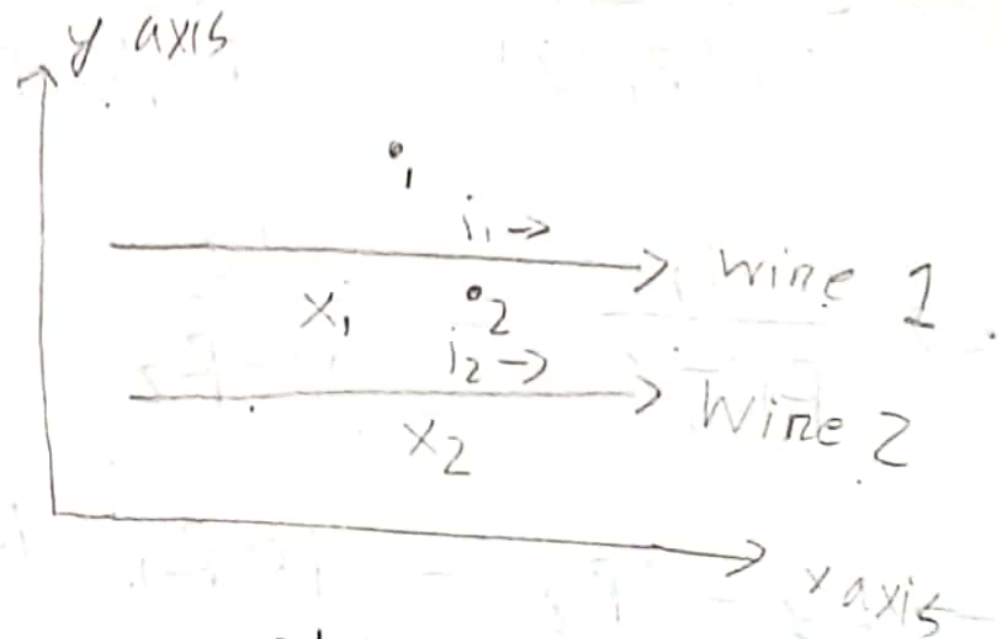 y axis
•₁
i₁ →
wire 1
X₁
•₂
i₂ →
Wire 2
X₂
x axis